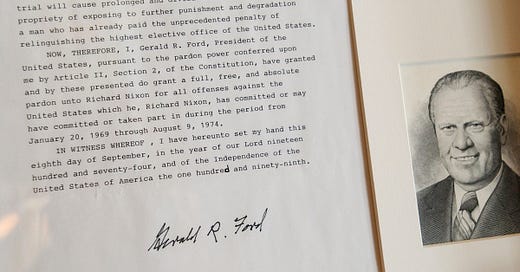 trial will cause prolonged and
propriety of exposing to further punishment and degradation
a man who has already paid the unprecedented penalty of
relinquishing the highest elective office of the United States.
NOW, THEREFORE, I, Gerald R. Ford, President of the
United States, pursuant to the pardon power conferred upon
me by Article II, Section 2, of the Constitution, have granted
and by these presents do grant a full, free, and absolute
pardon unto Richard Nixon for all offenses against the
United States which he, Richard Nixon, has committed or may
have committed or taken part in during the period from
January 20, 1969 through August 9, 1974.
IN WITNESS WHEREOF , I have hereunto set my hand this
eighth day of September, in the year of our Lord nineteen
hundred and seventy-four, and of the Independence of the
United States of America the one hundred and ninety-ninth.
Gerald R. Ford